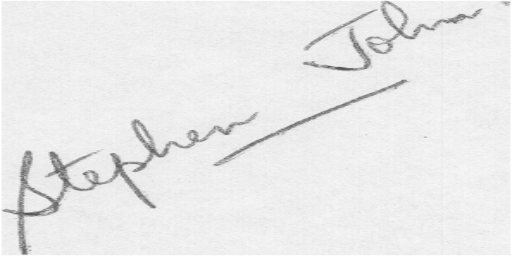 Stephen John